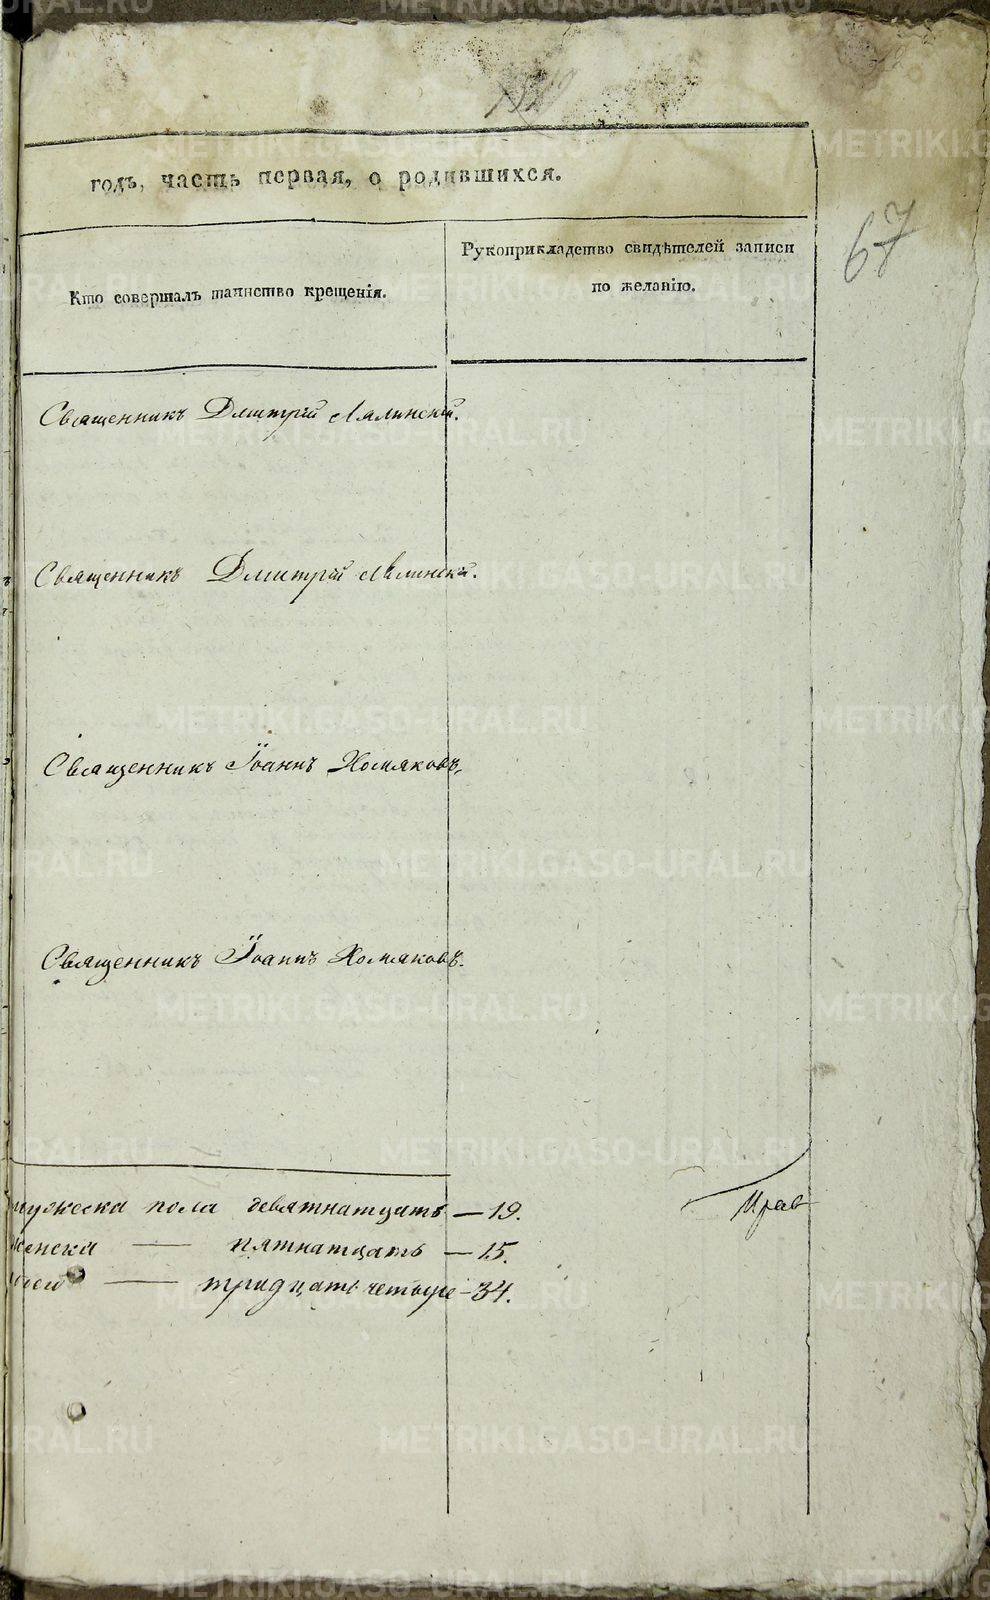 67
годъ, часть первая, о родившихся.
Кто совершалъ таинство крещенія.
Рукоприкладство свидѣтелей записи
по желанію.
Священникъ Дмитрій Лялинскій.
Священникъ Дмитрій Лялинскій.
Священникъ Іоаннъ Хомяковъ.
Священникъ Іоаннъ Хомяковъ.
мужеска пола девятнатцать — 19.
женска — пятнатцать — 15.
— тридцать четыре — 34.
METRIKI.GASO-URAL.RU